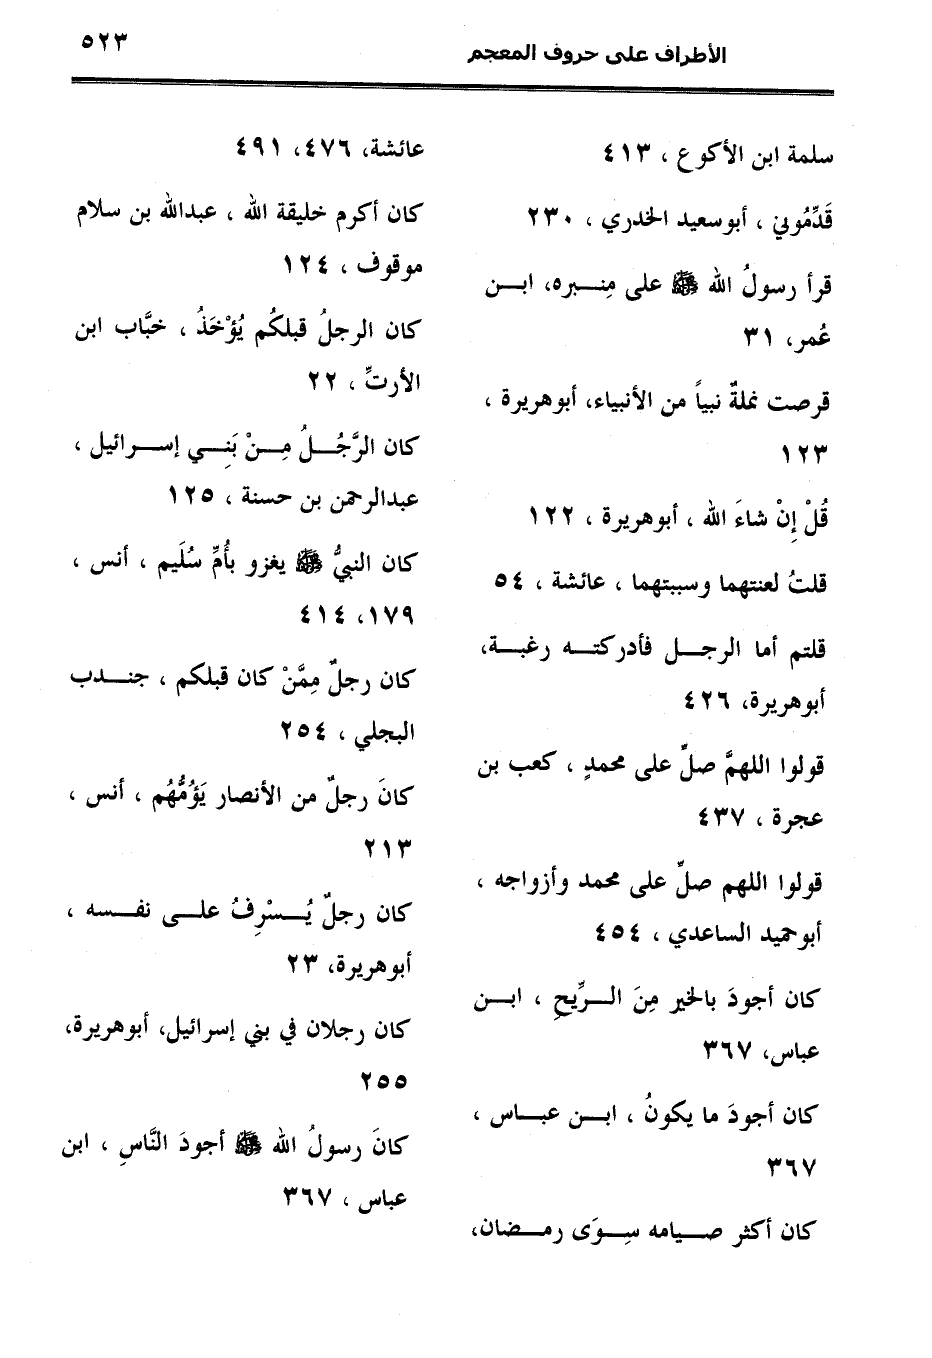 الأطراف على حروف المعجم
٥٢٣
سلمة ابن الأكوع ، ٤١٣
قَدِّمُونِي ، أبوسعيد الخدري ، ٢٣٠
قرأ رسولُ الله ﷺ على مِنــبره، ابــن
عُمر، ٣١
قرصت نملةٌ نبياً من الأنبياء، أبوهريرة ،
١٢٣
قُلْ إِنْ شاءَ الله ، أبوهريرة ، ١٢٢
قلتُ لعنتهما وسببتهما ، عائشة ، ٥٤
قلتم أما الرجــل فأدركتــه رغبــة،
أبوهريرة، ٤٢٦
قولوا اللهمَّ صلِّ على محمدٍ ، كعب بن
عجرة ، ٤٣٧
قولوا اللهم صلِّ على محمد وأزواجه ،
أبوحميد الساعدي ، ٤٥٤
كان أجودَ بالخير مِنَ الــرِّيحِ ، ابــن
عباس، ٣٦٧
كان أجودَ ما يكونُ ، ابــن عبــاس ،
٣٦٧
كان أكثر صــيامه سِــوَى رمــضان،
عائشة، ٤٧٦، ٤٩١
كان أكرم خليقة الله ، عبدالله بن سلام
موقوف ، ١٢٤
كان الرجلُ قبلكُم يُؤْخَذُ ، خبَّاب ابن
الأرتِّ ، ٢٢
كان الرَّجُــلُ مِــنْ بَنِــي إســرائيل ،
عبدالرحمن بن حسنة ، ١٢٥
كان النبيُّ ﷺ يغزو بأُمِّ سُلَيم ، أنس ،
١٧٩، ٤١٤
كان رجلٌ مِمَّنْ كان قبلكم ، جنــدب
البجلي ، ٢٥٤
كانَ رجلٌ من الأنصار يَؤُمُّهُم ، أنس ،
٢١٣
كان رجلٌ يُــسْرِفُ علــى نفــسه ،
أبوهريرة، ٢٣
كان رجلان في بني إسرائيل، أبوهريرة،
٢٥٥
كانَ رسولُ الله ﷺ أجودَ النَّاسِ ، ابن
عباس ، ٣٦٧